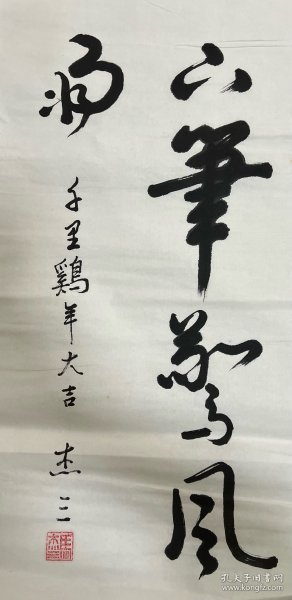 下筆驚風
雨
千里鷄年大吉 杰三
孔夫子旧书网